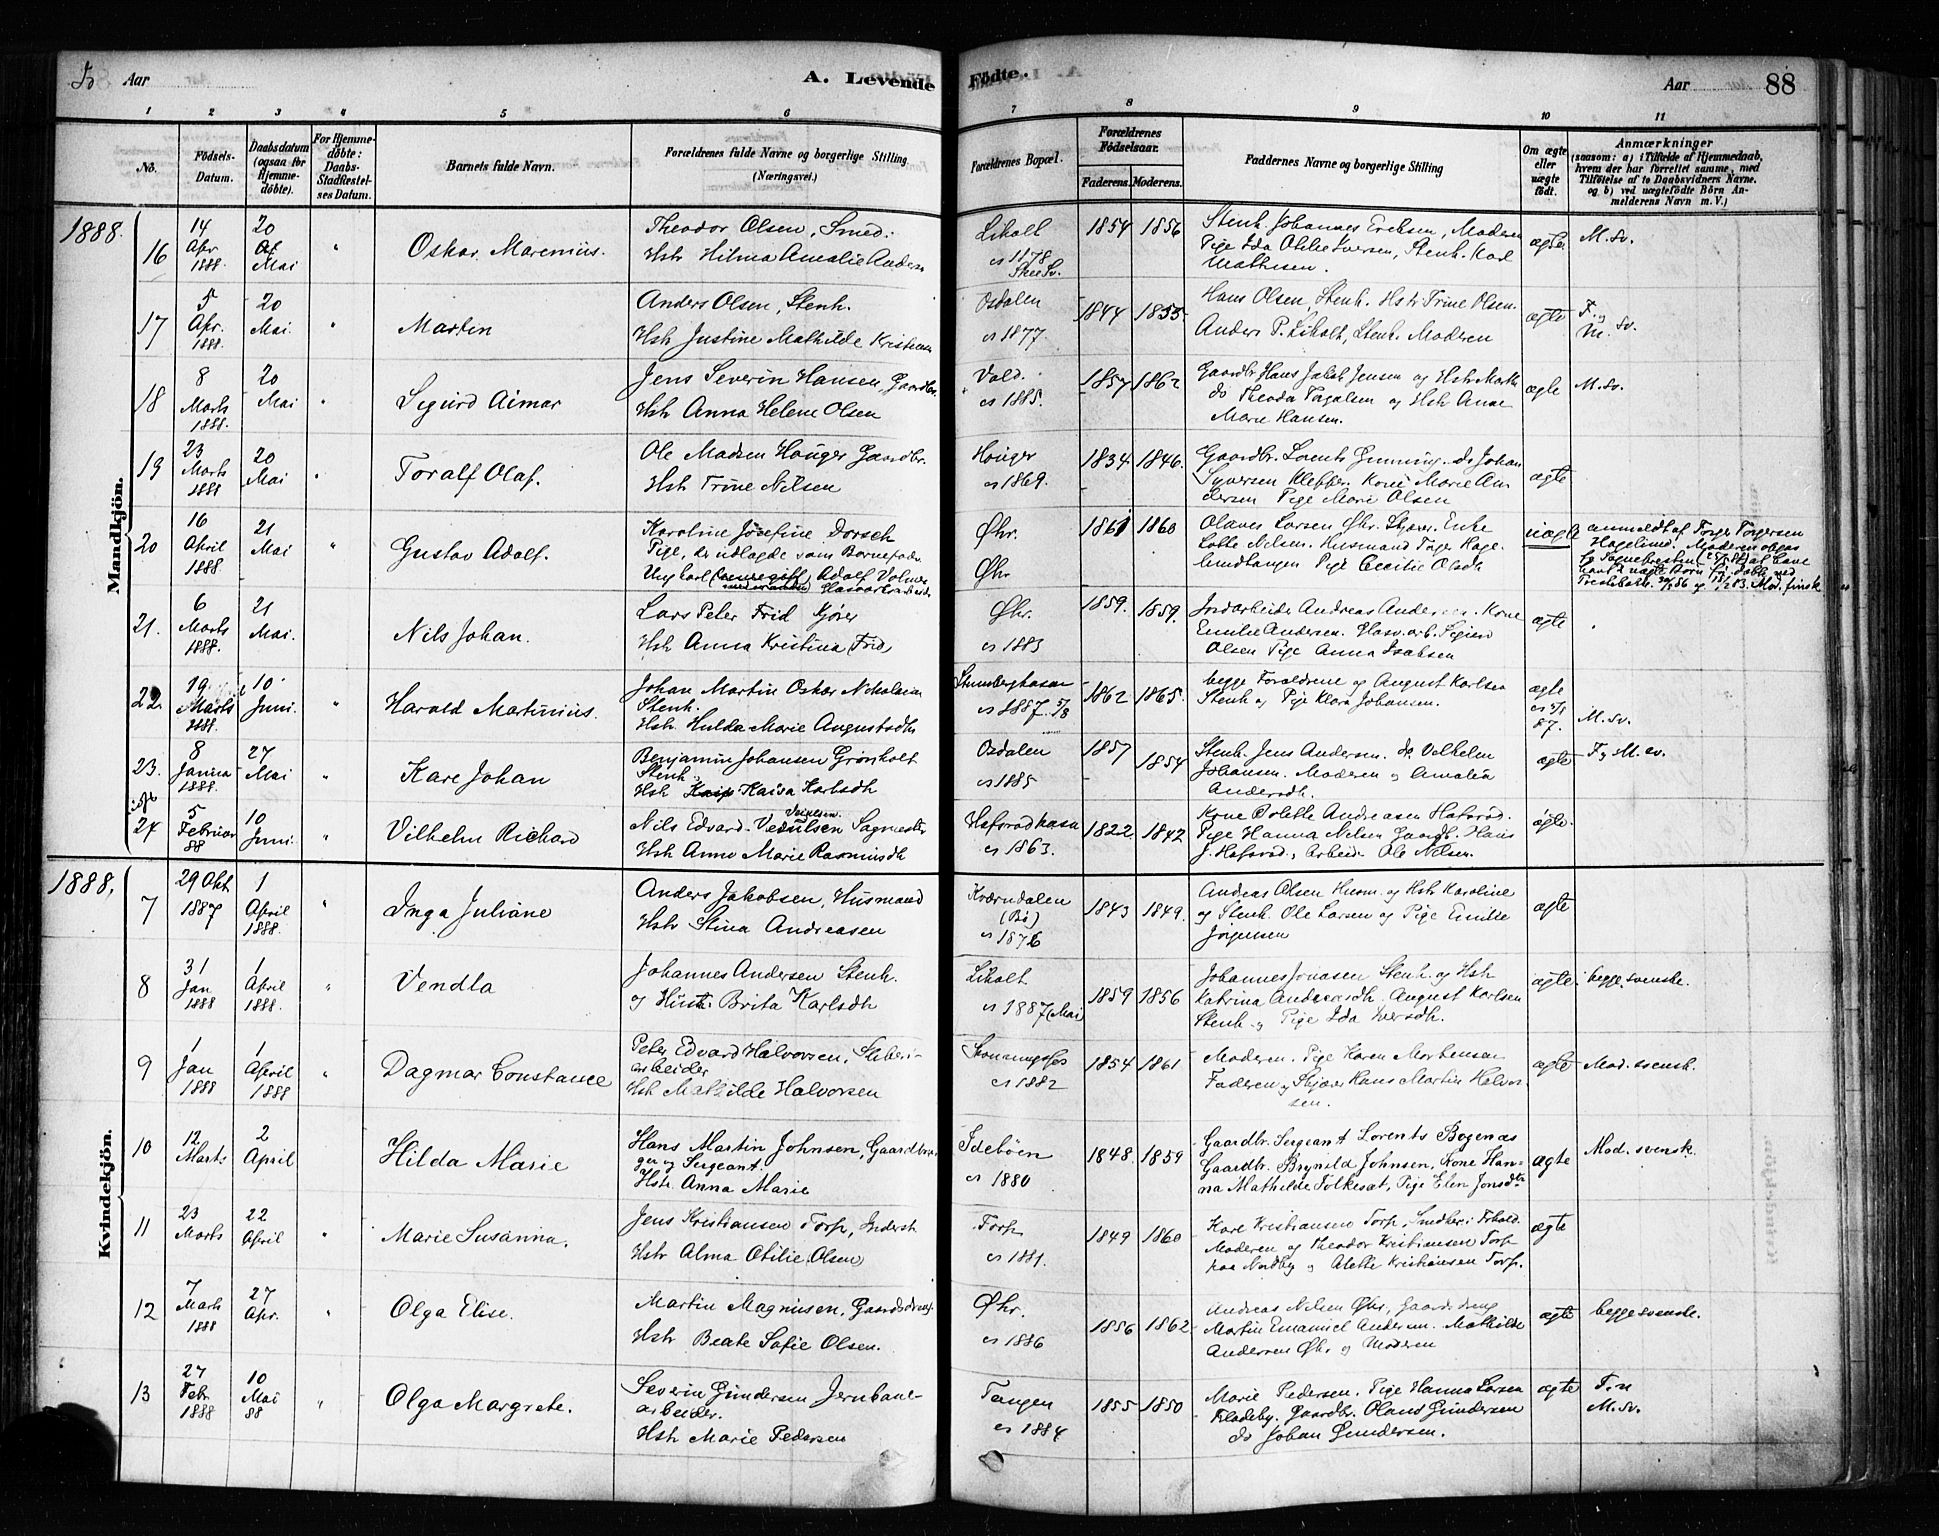 Aar
A. Levende
Fødte.
Aar
88
1 2 3 4 5 6 7 8 9 10 11
No.
Födsels-Datum.
Daabsdatum (ogsaa for Hjemme-döbte).
For Hjemme-döbte: Daabs-Stadfæstel-ses Datum.
Barnets fulde Navn.
Forældrenes fulde Navne og borgerlige Stilling.
(Næringsvei.)
Forældrenes Bopæl.
Forældrenes Födselsaar.
Faderens. Moderens.
Faddernes Navne og borgerlige Stilling
Om ægte eller uægte födt.
Anmærkninger
(saasom: a) i Tilfælde af Hjemmedaab,
hvem der har forrettet samme, med
Tilföielse af to Daabsvidners Navne,
og b) ved uægtefödte Börn An-
melderens Navn m. V.)
Mandkjön.
1888.
16
14 Apr 1888.
20 Mai
"
Oskar Marenius.
Theodor Olsen, Smed.
Hstr Hilma Amalie
Liholt
1854 1856
Stenh. Johannes Eriksen, Moderen
Pige Ida Otilie Iversen, Stenh. Karl
Mathisen.
ægte
M. sv.
17
5 Apr. 1888.
20 Mai.
"
Martin
Anders Olsen, Stenh.
Hstr Justine Mathilde
Osdalen
es 1877.
1844 1855
Hans Olsen, Stenh. Hstr Trine Olsen.
Anders P. Liholt, Stenh. Moderen
ægte
F. og M. sv.
18
8 Marts 1888.
20 Mai
"
Sigurd Aimar
Jens Severin Hansen, Gaardbr.
Hstr Anna Helene Olsen
Vold.
es 1885.
1857 1862
Gaardbr Hans Jakob Jensen og Hstr
do Theodor og Hstr Anne
Marie Hansen.
ægte
M. sv.
19
23 Marts 1888
20 Mai
"
Toralf Olaf.
Ole Madsen Houger Gaardbr.
Hstr Trine Nilsen
Houger
es 1869.
1834 1846.
Gaardbr. Lorents do Johan
Syversen Klepper. Kone Marie An
dersen Pige Marie Olsen
ægte
20
16 April 1888.
21 Mai
"
Gustav Adolf.
Karoline Josefine Dorsch
Pige, udlagde som Barnefader
Ungkarl Adolf
Øhr.
Øhr
1861 1860
Olaves Larsen Øhr. Enke
Lotte Nilsen. Husmand
Pige Cecilie
uægte
anmeldt af Torger Torgersen
21.
6 Marts 1888.
21 Mai.
Nils Johan.
Lars Peter Frid
Hstr Anna Kristina Frid
Øhr.
es 1883
1859. 1859.
Jordarbeider Andreas Kone
Emilie Andersen.
Olsen Pige Anna
ægte
22
19 Marts 1888.
10 Juni.
"
Harald Martinius.
Johan Martin Oskar
Stenh.
Hstr. Hulda Marie Augustsdtr
es 1887. 5/8
1862 1865.
begge Foræeldrene og August Karlsen
Stenh og Pige Klara Johansen.
ægte
87.
M. sv.
23.
8 Januar 1888.
27 Mai
"
Kare Johan
Benjamin Johansen Grönholt
Stenh.
Hstr Kaisa Karlsdtr
Osdalen
es 1885
1857 1854
Stenh. Jens Andersen. do Velhelm
Johansen. Moderen og Amalia
Andersdtr.
ægte
F og M. sv.
24
5 Februar 88
10 Juni.
"
Vilhelm Richard
Nils Edvard
Hstr Anne Marie Rasmusdtr
es 1863.
1822 1842
Kone Andreasen Hafsrød.
Pige Hanna Nilsen Gaardb. Hans
J. Hafsrød, Arbeid. Ole Nilsen.
ægte.
Kvindekjön.
1888.
7
29 Okt 1887
1 April 1888.
"
Inga Juliane
Anders Jakobsen, Husmand
Hstr Stina Andreasen
Kværndalen
(Bø)
es 1876
1843 1849.
Andreas Olsen Husm. og Hstr Karoline
og Stenh. Ole Larsen og Pige Emilie
Jörgensen
ægte
8
31 Jan 1888
1 April 1888.
"
Vendla
Johannes Andersen Stenh.
og Hustr. Brita Karlsdtr
Liholt
es 1887 (Mai)
1859 1856
Johannes Jonasen Stenh. og Hstr
Katrina Andreasdtr. August Karlsen
Stenh og Pige Ida Iversdtr.
ægte.
begge svenske.
9
1 Jan 1888
1 April 1888
"
Dagmar Constance
Peter Edvard Halvorsen, Sliberi-
arbeider
Hstr Mathilde Halvorsen
es 1882
1854 1861
Moderen. Pige Karen Mortensen
Faderen og Hans Martin Halvor
sen.
ægte
Mod. svensk.
10
12 Marts
2 April
Hilda Marie
Hans Martin Johnsen, Gaardbru
ger og Sergeant.
Hstr. Anna Marie
Idebøen
es 1880
1848. 1859
Gaardbr. Sergeant Lorents Bøgenæs
Gaardbr. Brynild Johnsen, Kone Han-
na Mathilde Folkesæt, Pige Elen Jonsdtr
ægte
Mod. svensk.
11
23 Marts
22 April
"
Marie Susanna.
Jens Kristiansen Torp, Inderst
Hstr Alma Otilie Olsen
Torp
es 1881.
1849 1860
Karl Kristiansen Torp,
Moderen og Theodor Kristiansen Torp
paa Nordby og Alette Kristiansen Torp.
ægte
12
7 Marts 1888
27 Apr.
"
Olga Elise.
Martin Magnusen, Gaardsdreng
Hstr Beate Sofie Olsen.
Øhr.
es 1886
1856 1862
Andreas Nilsen Øhr, Gaardsdreng
Martin Emanuel Andersen. Mathilde
Andersen Øhr og Moderen
ægte
begge svenske.
13
27 Febr. 1888
10 Mai 88
"
Olga Margrete.
Severin Gundersen Jernbane-
arbeider.
Hstr Marie Pedersen
Tangen
es 1884
1855 1850
Marie Pedersen. Pige Hanna Larsen
Fladeby, Gaardbr. Olaus Gundersen
do Johan Gundersen.
ægte
M. sv.